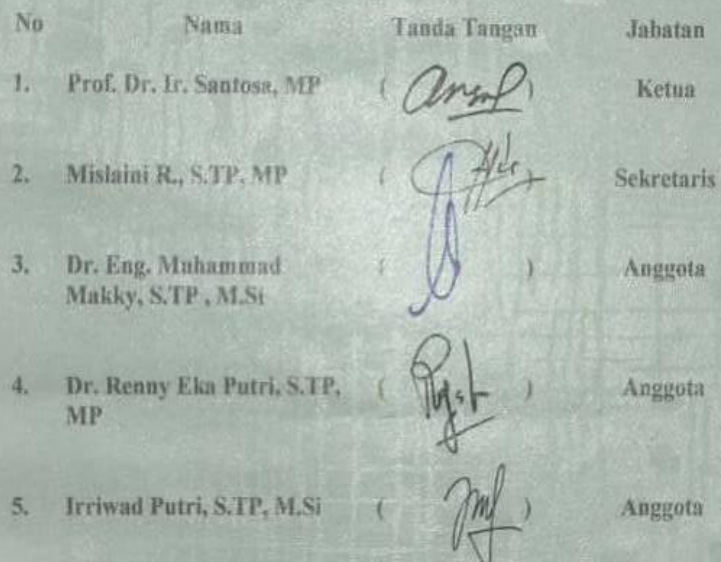 No Nama Tanda Tangan Jabatan
1. Prof. Dr. Ir. Santosa, MP ( ) Ketua
2. Mislaini R., S.TP, MP ( ) Sekretaris
3. Dr. Eng. Muhammad ( ) Anggota
Makky, S.TP , M.Si
4. Dr. Renny Eka Putri, S.TP, ( ) Anggota
MP
5. Irriwad Putri, S.TP, M.Si ( ) Anggota